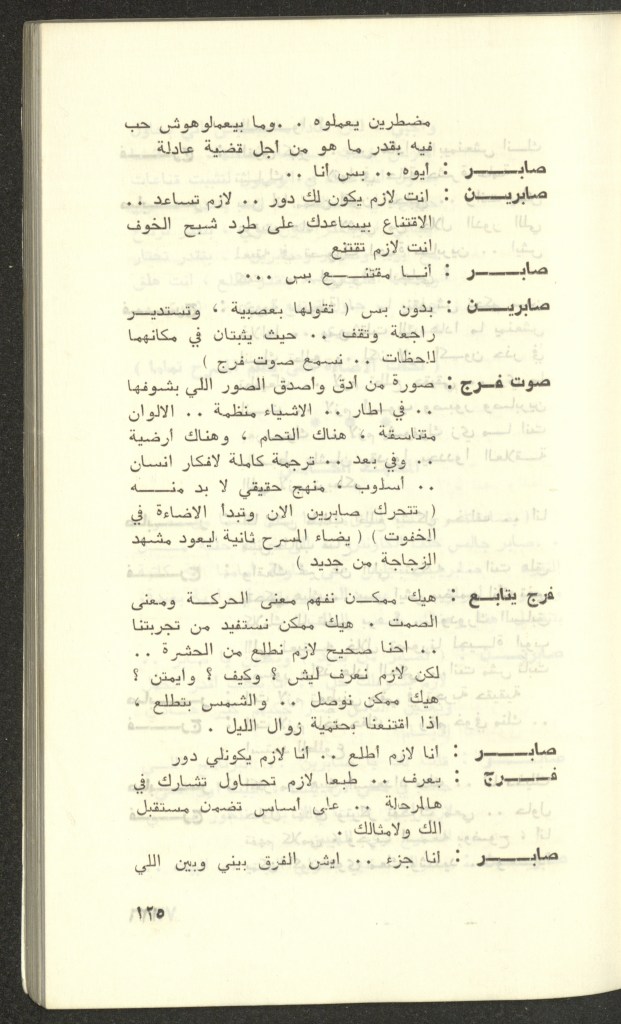 مضطرين يعملوه . . وما بيعملوهوش حب
فيه بقدر ما هو من أجل قضية عادلة
صابـــــر : أيوه .. بس أنا ..
صابريـــن : انت لازم يكون لك دور .. لازم تساعد ..
الاقتناع بيساعدك على طرد شبح الخوف
انت لازم تقتنع
صابـــــر : أنــا مقتنـــع بس ...
صابريـــن : بدون بس ( تقولها بعصبية ، وتستديــر
راجعة وتقف .. حيث يثبتان في مكانهما
لاحظات .. نسمع صوت فرج )
صوت فـرج : صورة من أدق وأصدق الصور اللي بشوفها
.. في اطار .. الاشياء منظمة .. الالوان
متناسقة ، هناك التحام ، وهناك أرضية
.. وفي بعد .. ترجمة كاملة لافكار انسان
.. أسلوب ، منهج حقيقي لا بد منــــه
( تتحرك صابرين الان وتبدأ الاضاءة في
الخفوت ) ( يضاء المسرح ثانية ليعود مشهد
الزجاجة من جديد )
فرج يتابـع : هيك ممكــن نفهم معنى الحركــة ومعنى
الصمت . هيك ممكن نستفيد من تجربتنا
.. احنا صحيح لازم نطلع من الحشرة ..
لكن لازم نعرف ليش ؟ وكيف ؟ وايمتن ؟
هيك ممكن نوصل .. والشمس بتطلع ،
اذا اقتنعنا بحتمية زوال الليل .
صابـــــر : انا لازم اطلع .. انا لازم يكونلي دور
فــــــرج : بعرف .. طبعا لازم تحــاول تشارك في
هالمرحلة .. على أساس تضمن مستقبل
الك ولامثالك .
صابـــــر : انا جزء .. ايش الفرق بيني وبين اللي
١٢٥